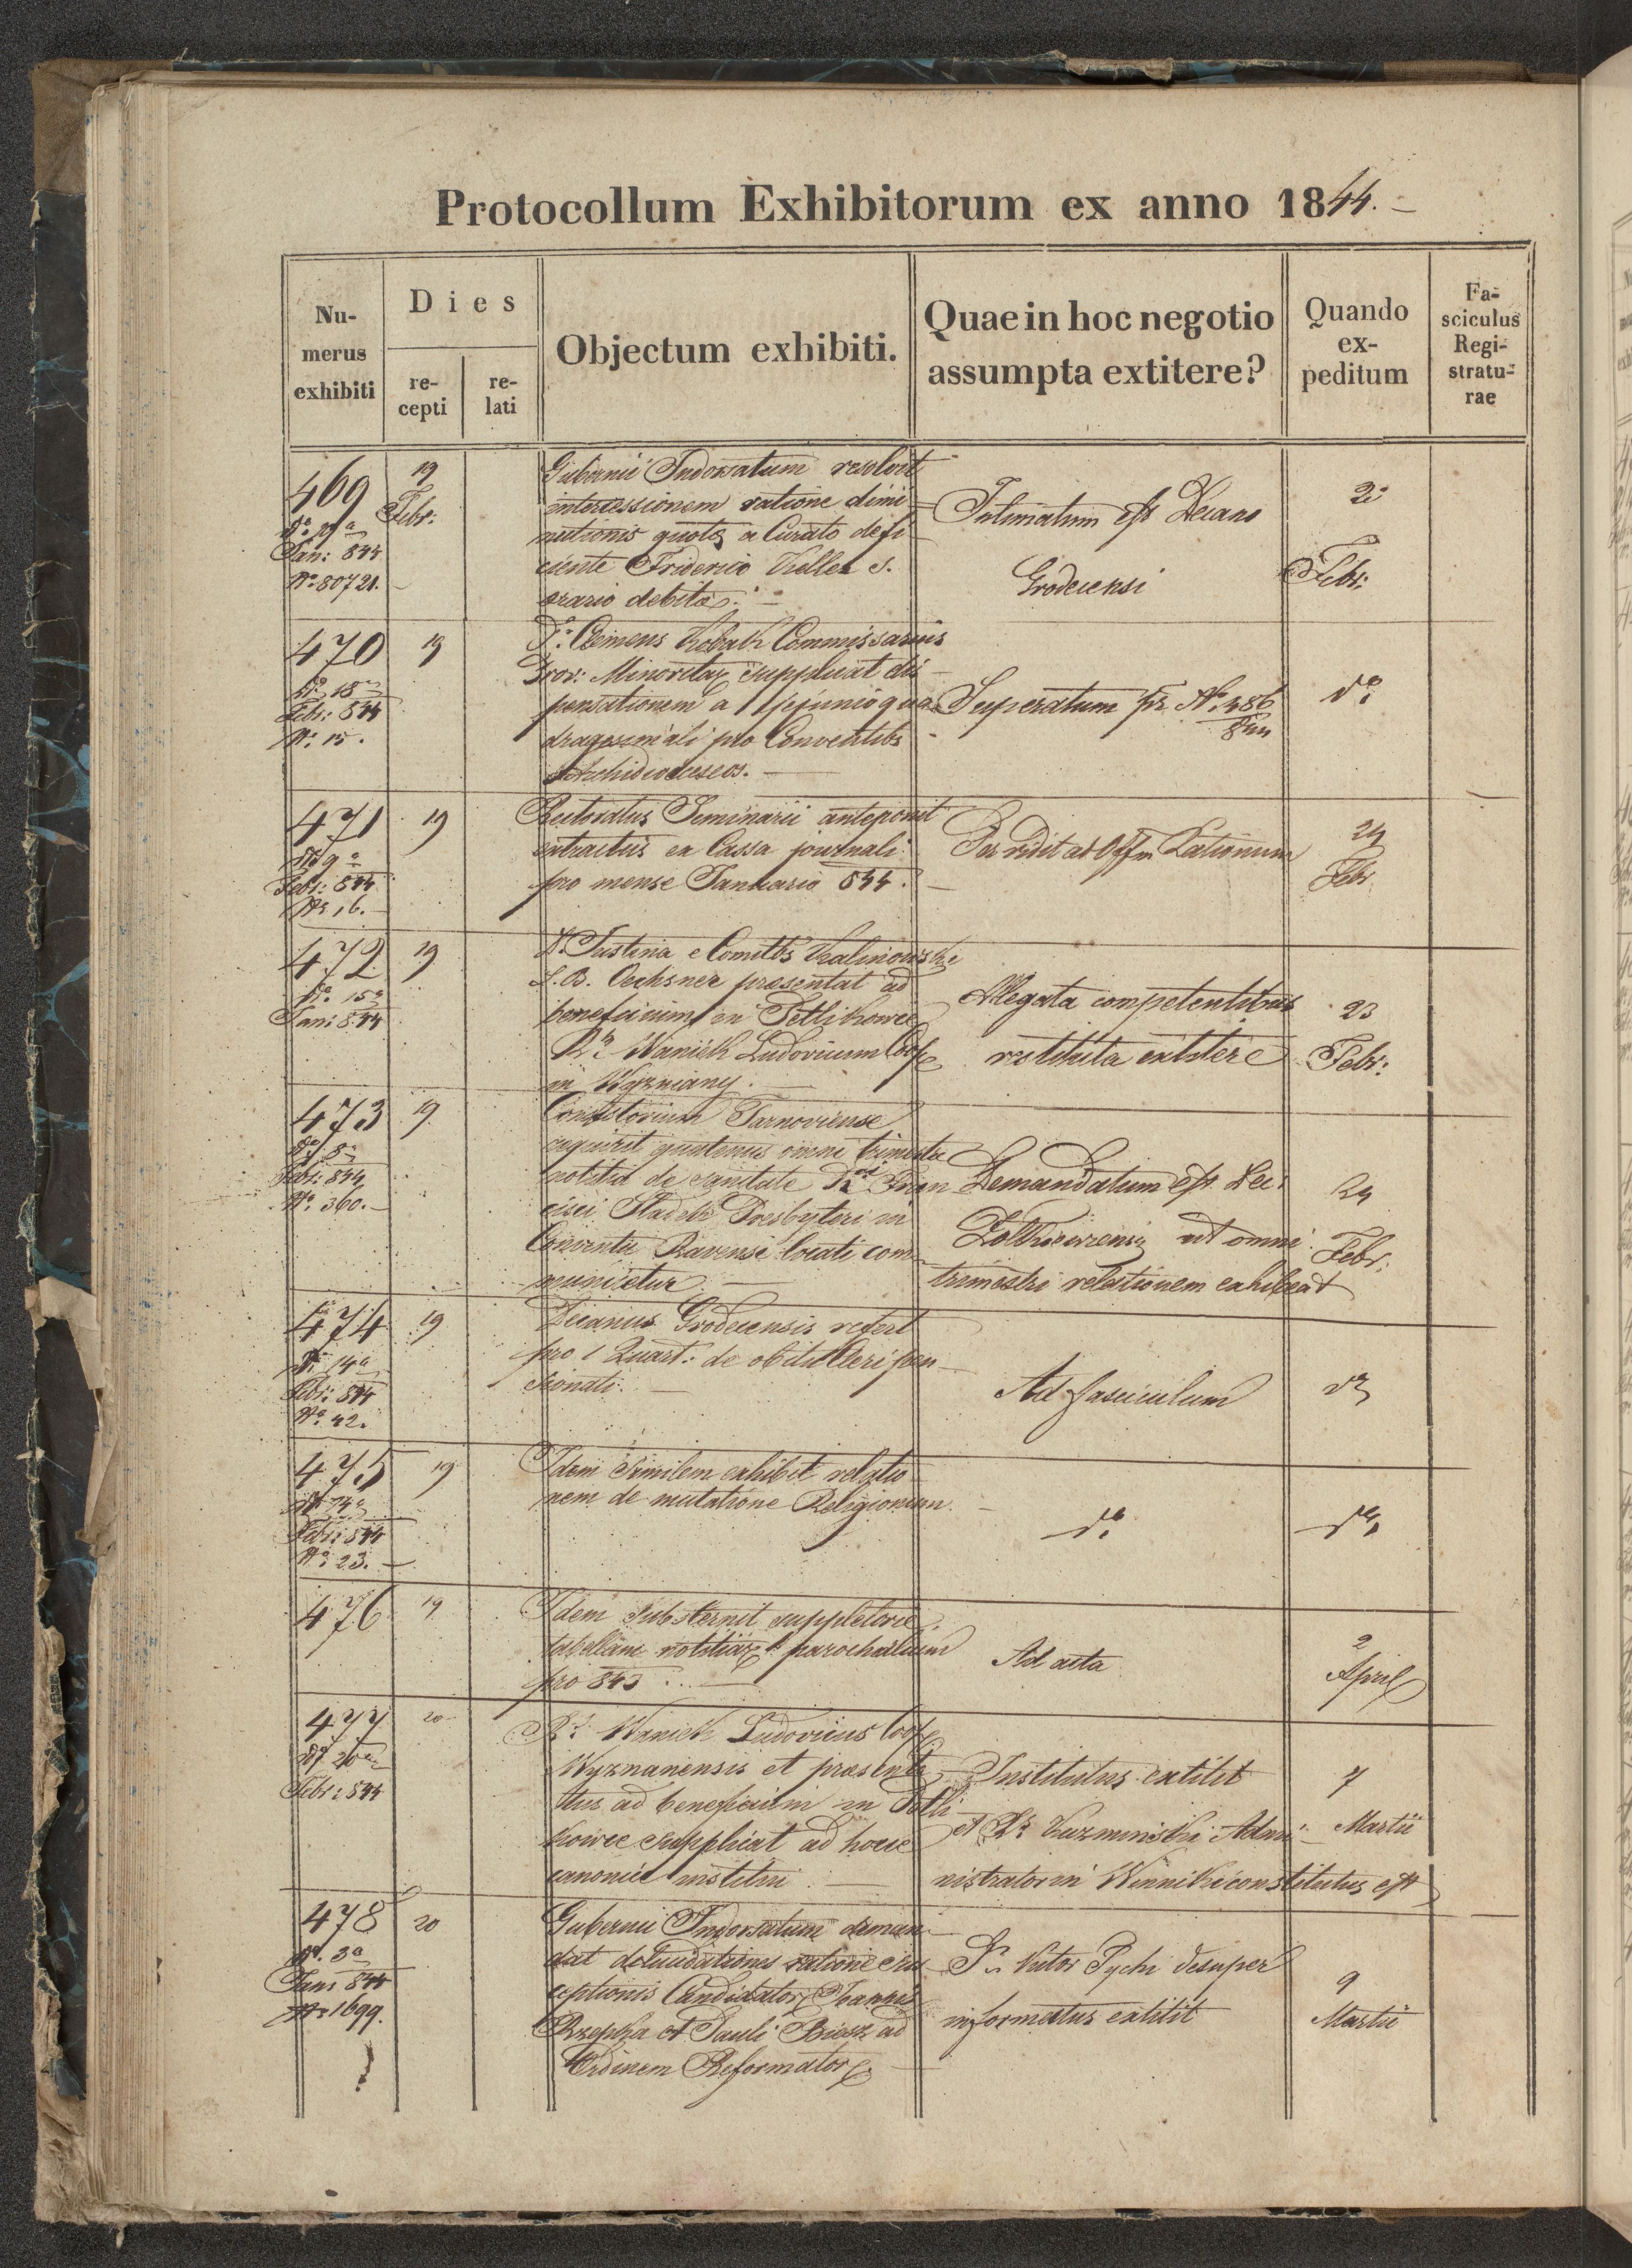 Protocollum Exhibitorum ex anno 1844.
Nu-
merus
exhibiti
Dies
re-
cepti
re-
lati
Objectum exhibiti.
Quae in hoc negotio
assumpta extitere?
Quando
ex-
peditum
Fa-
sciculus
Regi-
stratu-
rae
469
Jan: 844
Nº 80721.
19
Febr:
Gubernii Indorsatum resolvit
intercessionem ratione dimi
nutionis quotæ a Curato defi
ciente Friderico Keller S.
ærario debitæ.
Intimatum est Decano
Grodecensi
Febr:
470
dº 18a
Febr: 844
Nº 15.
19
P. Clemens Commissarius
Prov: Minoritar supplicat dis
pensationem a jejunio qua
dragesimali pro Conventibs
Archidioeceseos.
Superatum pr Nº 486
dº
471
dº 9a
Febr: 844
Nº 16.
19
Rectoratus Seminarii anteponit
extractus ex Cassa journali
pro mense Januario 844.
Per vidit ad Offm Rationum
29
Febr
472
dº 15a
Jan: 844
19
Justina e Comitbs Kalinowskie
L. B. Oechsner præsentat ad
beneficium in Petlikowce
Rm Wanick Ludovicum Coop
in Wyzniany.
Allegata competentibus
restituta extitere
23
Febr:
473
Febr: 844
Nº 360.
19
Consistorium Tarnoviense
requirit quatenus omni trimestre
notitia de sanitate Fran
cisci Presbyteri in
Conventu Ravensi locati com
municetur
Demandatum est Dec:
Zolkieviensi ut omni
trimestri relationem exhibeat
24
Febr:
474
dº 14a
Febr: 844
Nº 42.
19
Decanus Grodecensis refert
pro 1 Quart: de obitu Cleri pen
sionati.
Ad fasciculum
dº
475
dº 14a
Febr: 844
Nº 23.
19
Idem similem exhibet relatio
nem de mutatione Religionum.
dº
dº
476
19
Idem substernit suppletorie
tabellam notitiar parochialium
pro 843.
Ad acta
2
April
477
dº 20a
Febr: 844
20
Rs Wanick Ludovicus Coop
Wyznanensis et præsenta
tus ad beneficium in Petli
kowce supplicat ad hocce
canonice institui.
Institutus extitit
et Rs Kuzminski Admi
nistrator in Winniki constitutus est
7
Martii
478
dº 3a
Jan: 844
Nº 1699.
20
Gubernii Indorsatum deman
dat delucidationes ratione sus
ceptionis Candidator Joannis
Rzepka et Pauli Biesz ad
Ordinem Reformator
desuper
informatus extitit
9
Martii